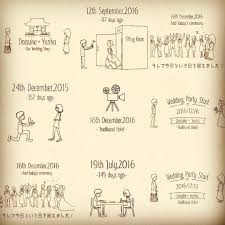 12th September,2016
days ago-
Fitting Room
Daisuke + Yuriko
Our Wedding Story
16th December,2016
And today's ceremony
そして今日という日を迎えました！
24th December,2015
-357 days ago-
16th December,2016
Traditional Hotel
Wedding Party Start
2016.12.16
Daisuke + Yuriko
Traditional Hotel
16th December,2016
And today's ceremony
そして今日という日を迎えました！
19th July,2016
days ago-
Wedding Party Start
2016.12.16
Daisuke + Yuriko
Traditional Hotel